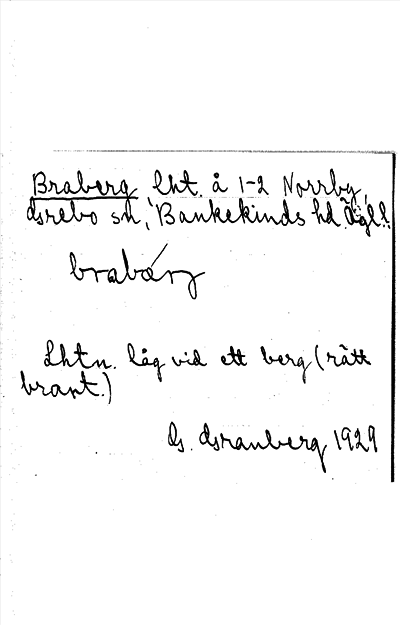 Braberg, lht. å 1-2 Norrby,
Grebo sn, Bankekinds hd. Ögl.
brabærj
Lhtn. låg vid ett berg (rätt
brant.)
G. Granberg 1929